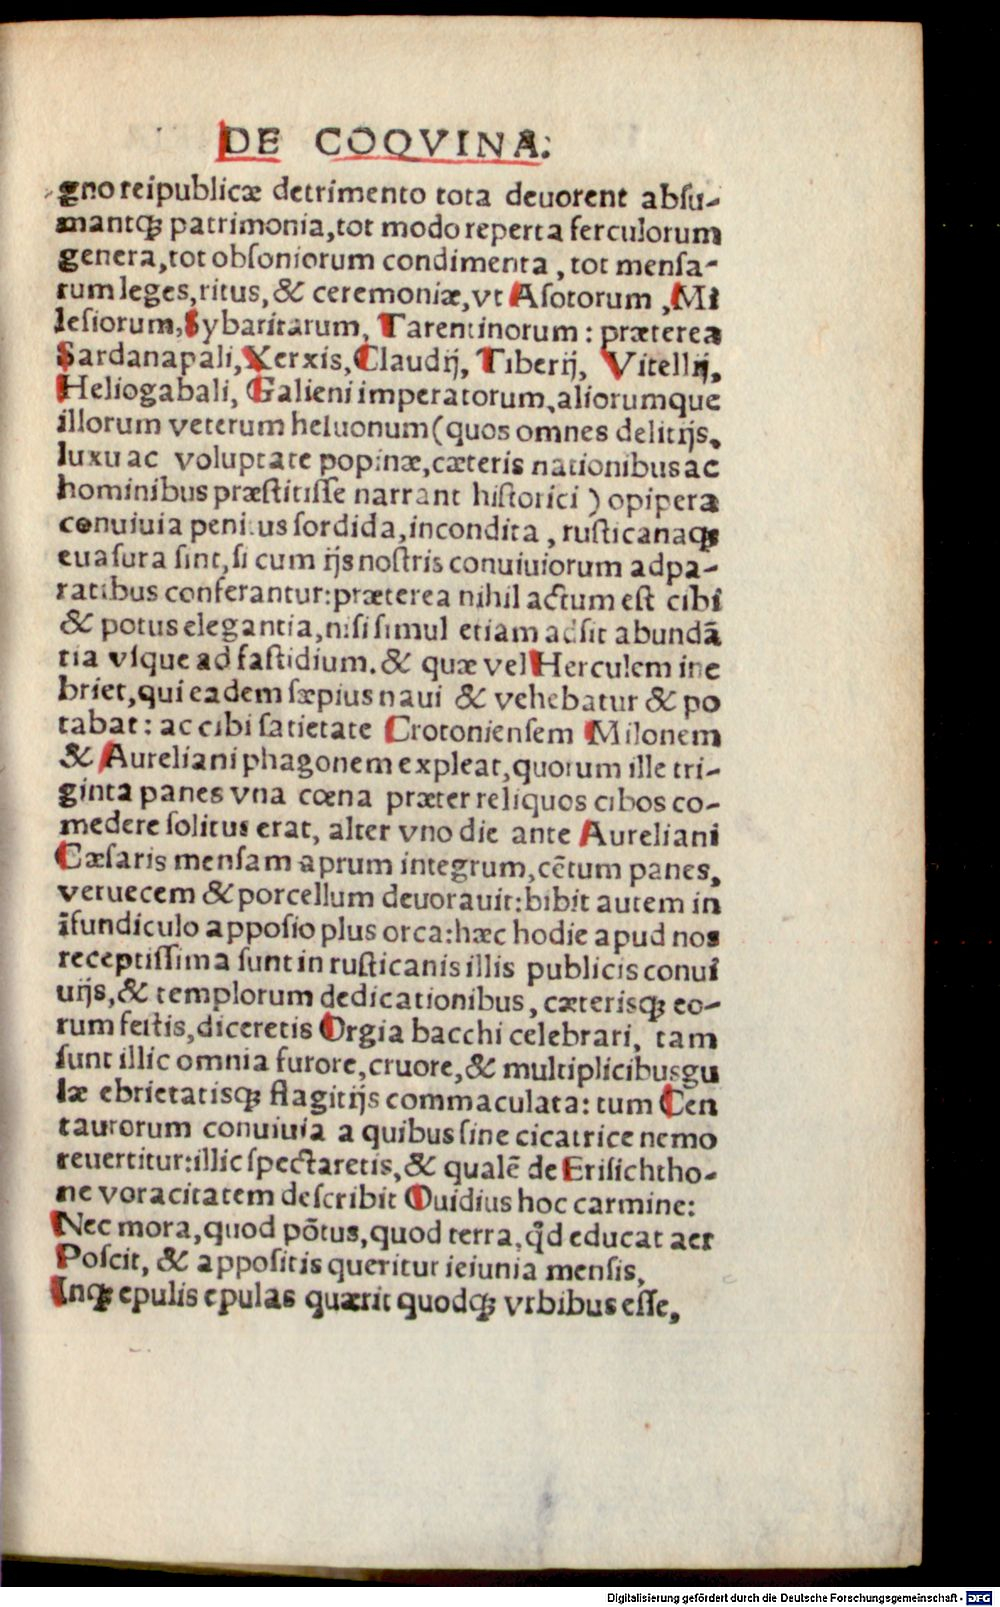 DE COQVINA.
gno reipublicæ detrimento tota deuorent absu-
mantqꝫ patrimonia, tot modo reperta ferculorum
genera, tot obsoniorum condimenta, tot mensa-
rum leges, ritus, & ceremoniæ, vt Asotorum, Mi
lesiorum, Sybaritarum, Tarentinorum: præterea
Sardanapali, Xerxis, Claudij, Tiberij, Vitellij,
Heliogabali, Galieni imperatorum, aliorumque
illorum veterum heluonum (quos omnes delitijs,
luxu ac voluptate popinæ, cæteris nationibus ac
hominibus præstitisse narrant historici) opipera
conuiuia penitus sordida, incondita, rusticanaqꝫ
euasura sint, si cum ijs nostris conuiuiorum adpa-
ratibus conferantur: præterea nihil actum est cibi
& potus elegantia, nisi simul etiam adsit abundā
tia vsque ad fastidium. & quæ vel Herculem ine
briet, qui eadem sæpius naui & vehebatur & po
tabat: ac cibi satietate Crotoniensem Milonem
& Aureliani phagonem expleat, quorum ille tri-
ginta panes vna cœna præter reliquos cibos co-
medere solitus erat, alter vno die ante Aureliani
Cæsaris mensam aprum integrum, cētum panes,
veruecem & porcellum deuorauit: bibit autem in
īfundiculo apposio plus orca: hæc hodie apud nos
receptissima sunt in rusticanis illis publicis conui
uijs, & templorum dedicationibus, cæterisqꝫ eo-
rum festis, diceretis Orgia bacchi celebrari, tam
sunt illic omnia furore, cruore, & multiplicibus gu
læ ebrietatisqꝫ flagitijs commaculata: tum Cen
taurorum conuiuia a quibus sine cicatrice nemo
reuertitur: illic spectaretis, & qualē de Erisichtho-
ne voracitatem describit Ouidius hoc carmine:
Nec mora, quod pōtus, quod terra, qd̄ educat aer
Poscit, & appositis queritur ieiunia mensis,
Inqꝫ epulis epulas quærit quodqꝫ vrbibus esse,
Digitalisierung gefördert durch die Deutsche Forschungsgemeinschaft - DFG